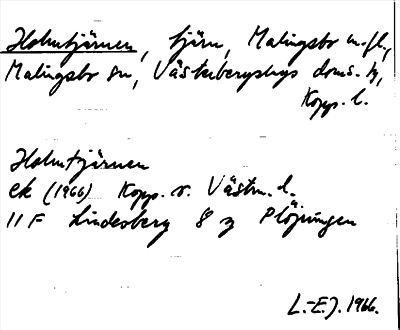 Holmtjärnen, tjärn, Malingsbo m.fl.,
Malingsbo sn, Västerbergslags doms. h,
Kopp. l.
Holmtjärnen
ek (1966) Kopp. o. Västm. l.
11 F Lindesberg 8 g Plöjningen
L.-E.J. 1966.